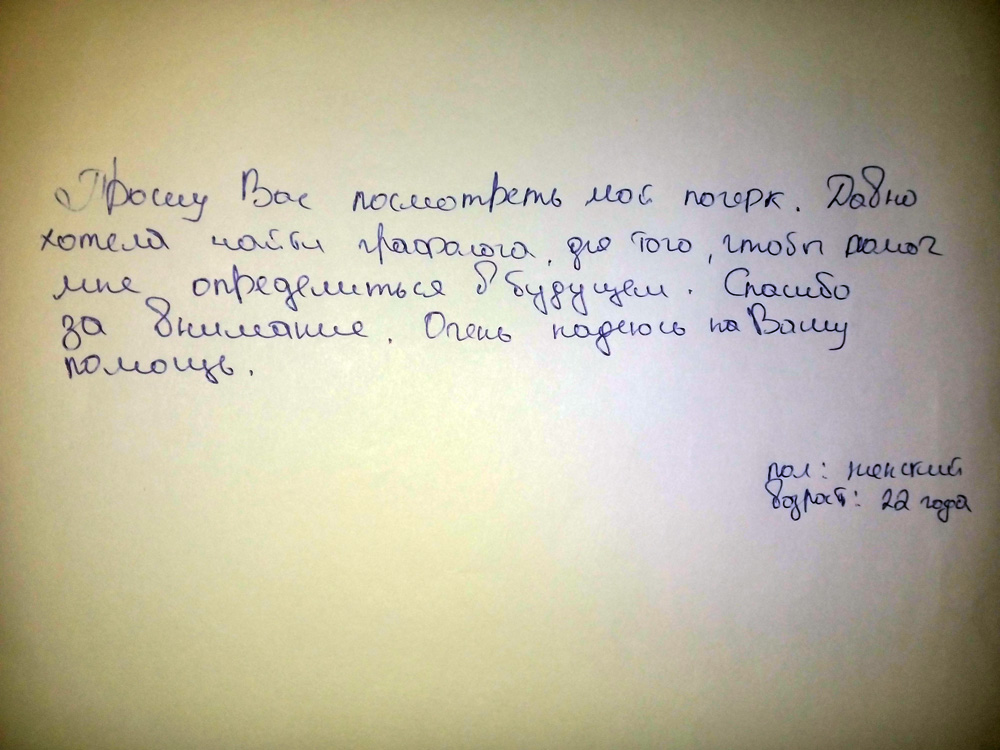 Прошу Вас посмотреть мой почерк. Давно
хотела найти графолога, для того, чтобы помог
мне определиться в будущем. Спасибо
за внимание. Очень надеюсь на Вашу
помощь.
пол: женский
возраст: 22 года